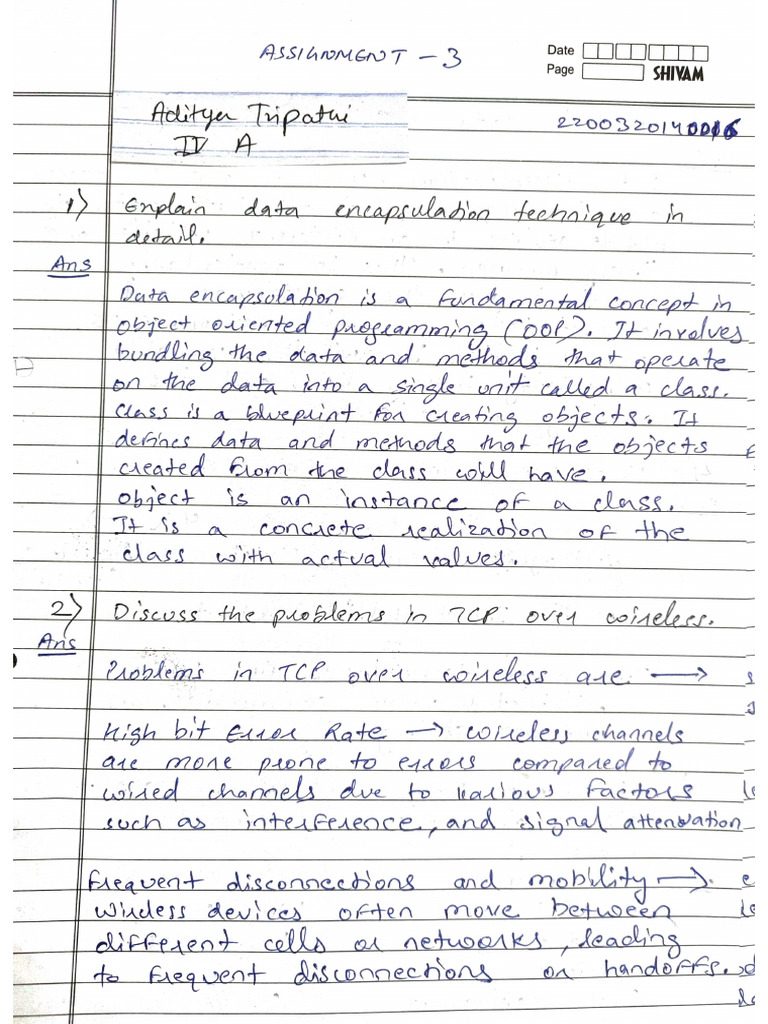 ASSIGNMENT - 3
Date
Page
SHIVAM
Aditya Tripathi
IV A
2200320140016
1) Explain data encapsulation technique in
detail.
Ans
Data encapsulation is a fundamental concept in
object oriented programming (OOP). It involves
bundling the data and methods that operate
on the data into a single unit called a class.
Class is a blueprint for creating objects. It
defines data and methods that the objects
created from the class will have.
object is an instance of a class.
It is a concrete realization of the
class with actual values.
2) Discuss the problems in TCP over wireless.
Ans
Problems in TCP over wireless are →
High bit Error Rate → wireless channels
are more prone to errors compared to
wired channels due to various factors
such as interference, and signal attenuation
Frequent disconnections and mobility →
wireless devices often move between
different cells or networks, leading
to frequent disconnections or handoffs.